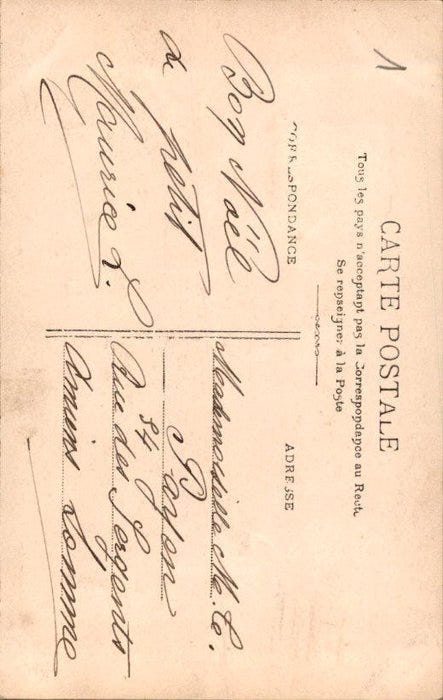 1
CARTE POSTALE
Tous les pays n'acceptant pas la Correspondance au Recto
Se renseigner à la Poste
CORRESPONDANCE
ADRESSE
Bon Noël
petit
Maurice L.
Mademoiselle M. C.
Doyen
34
Rue des Sergents
Amiens Somme